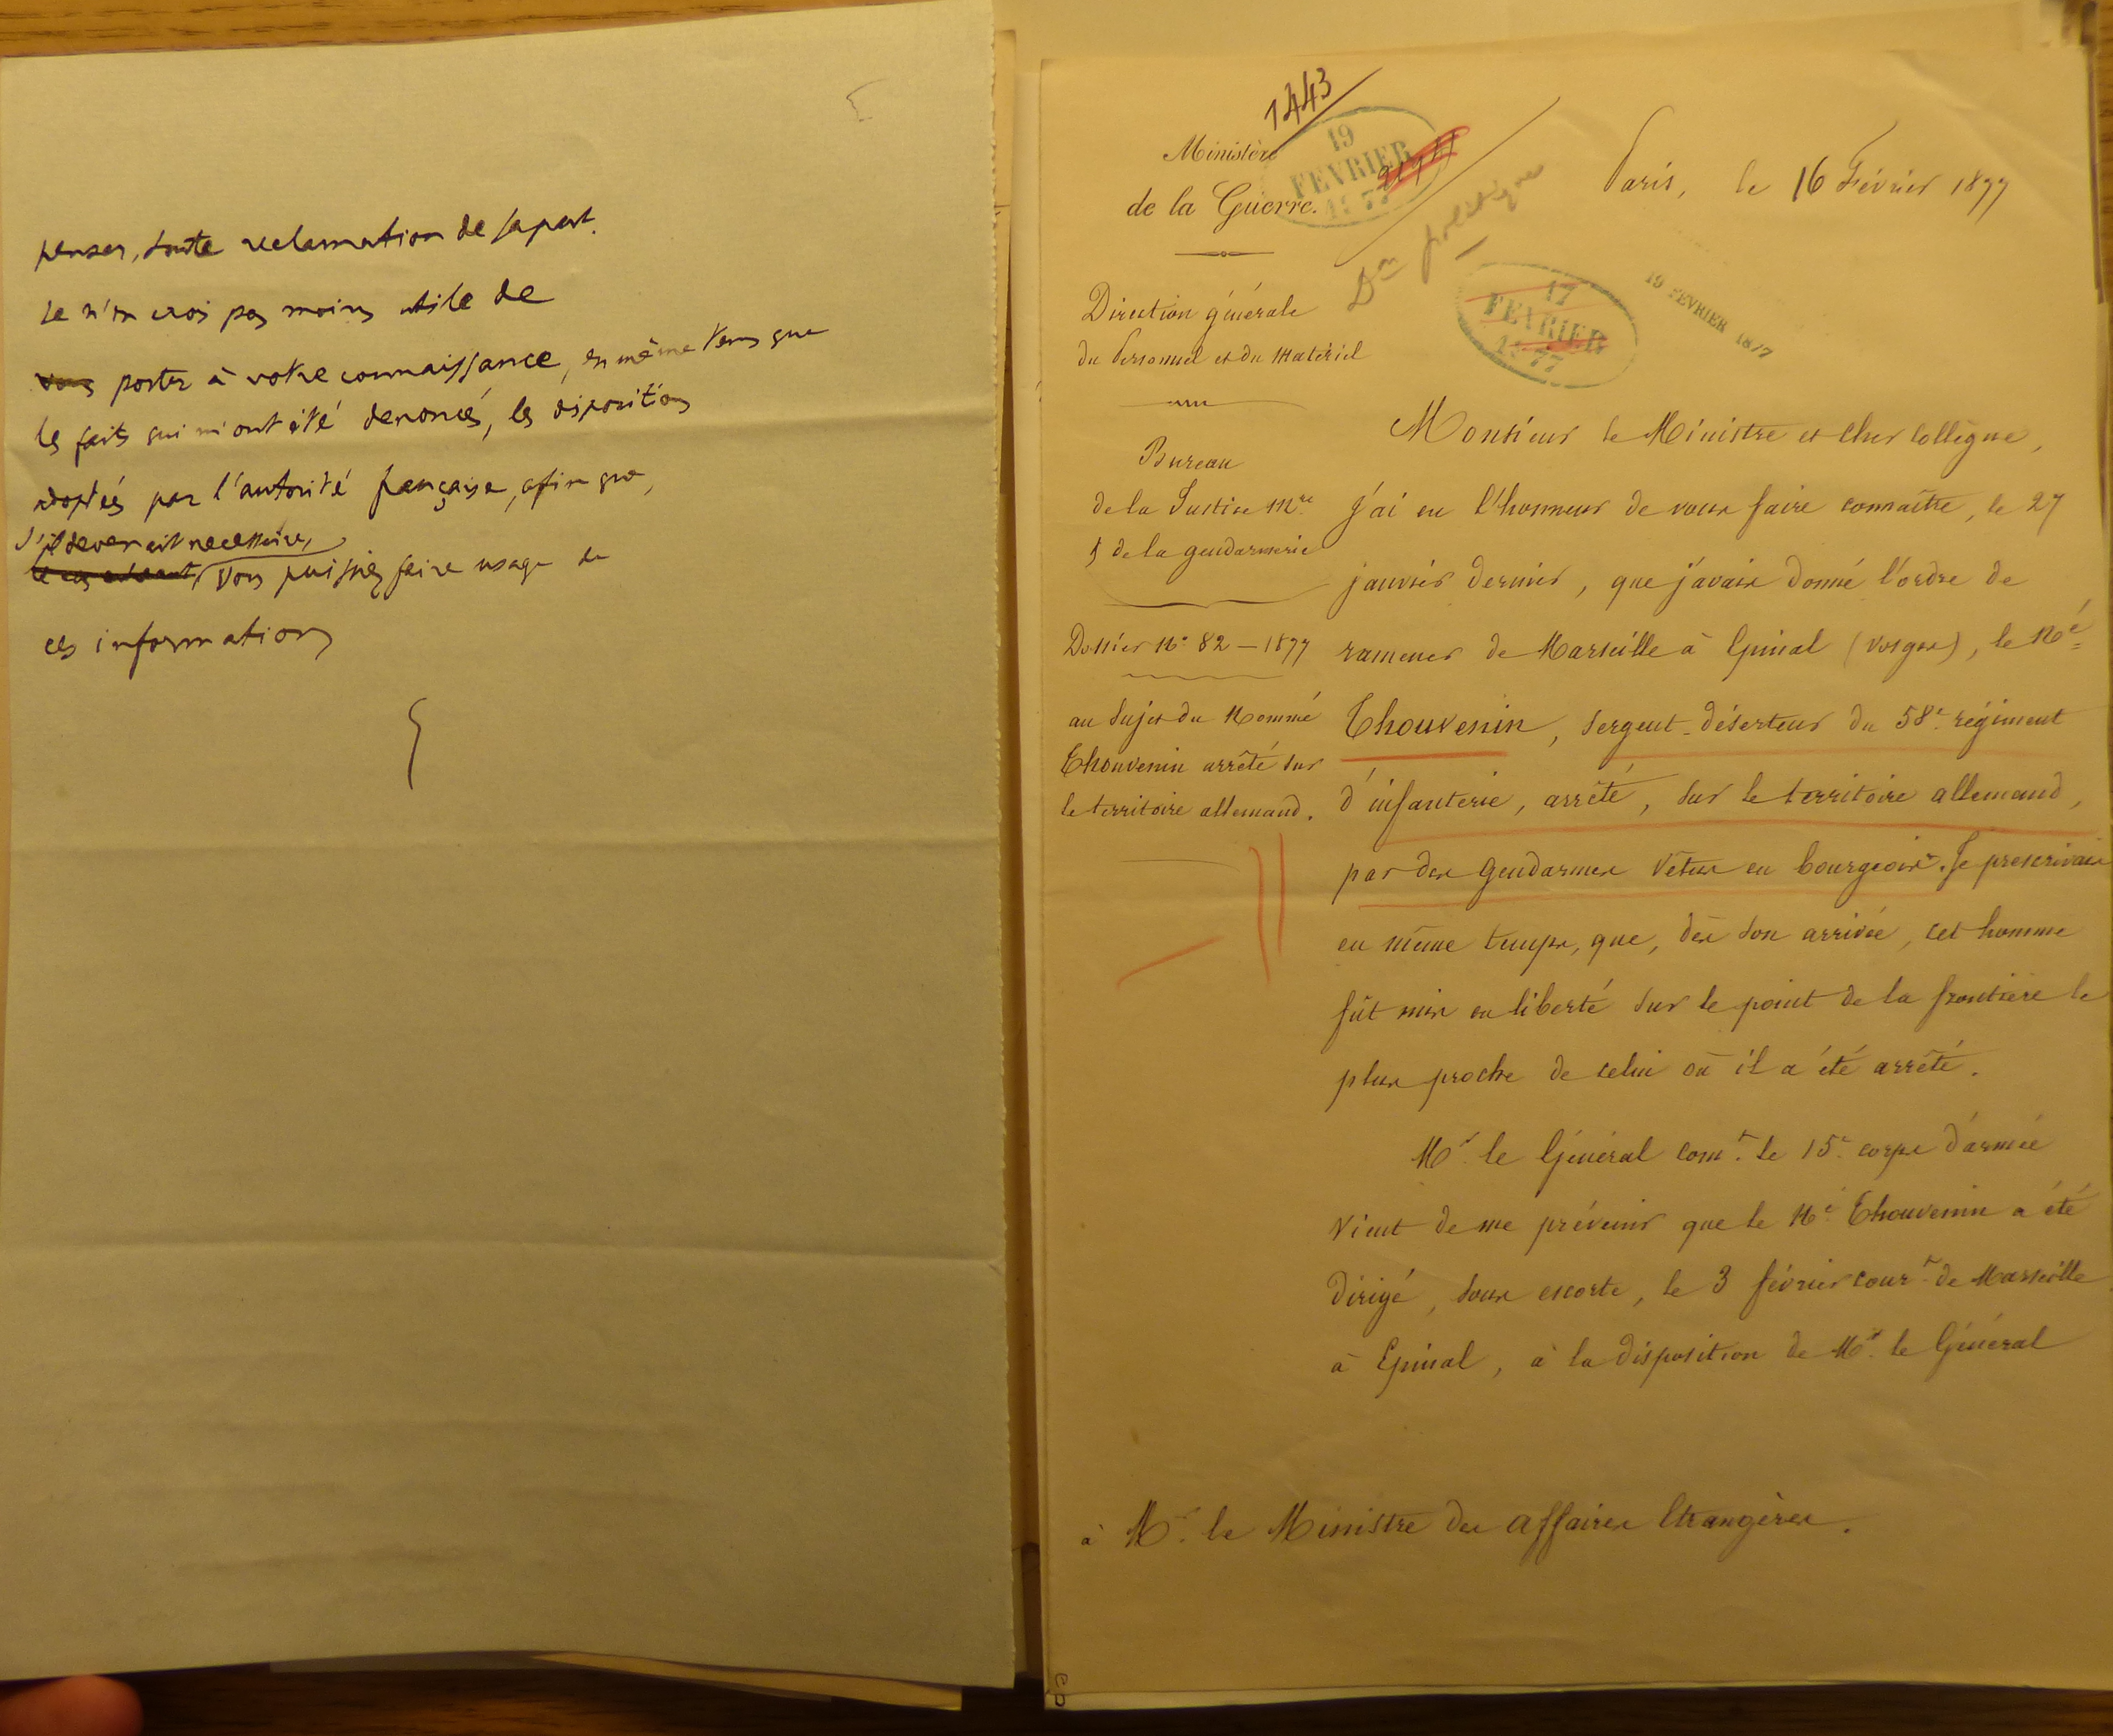 penser, toute reclamation de sa part.
Je n'en crois pas moins utile de
vous porter à votre connaissance, en même tems que
les faits qui m'ont été denoncés, les dispositions
adoptées par l'autorité française, afin que,
s'il devenait necessaire,
le cas échéant, vous puissiez faire usage de
ces informations
1443
Ministère
de la Guerre.
19
FEVRIER
1877
Don politique
Paris, le 16 Février 1877
17
FEVRIER
1877
19 FEVRIER 1877
Direction générale
du Personnel et du Matériel
Bureau
de la Justice Mre
& de la gendarmerie
Dossier No 82 — 1877
au sujet du Nommé
Thouvenin arrêté sur
le territoire allemand.
Monsieur le Ministre et cher collègue,
J'ai eu l'honneur de vous faire connaître, le 27
janvier dernier, que j'avais donné l'ordre de
ramener de Marseille à Epinal (Vosges), le Né
Thouvenin, sergent-déserteur du 58e régiment
d'infanterie, arrêté, sur le territoire allemand,
par des gendarmes vêtus en bourgeois. Je prescrivais
en même temps, que, dès son arrivée, cet homme
fût mis en liberté sur le point de la frontière le
plus proche de celui où il a été arrêté.
Mr le Général comt le 15e corps d'armée
vient de me prévenir que le Né Thouvenin a été
dirigé, sous escorte, le 3 février court de Marseille
à Epinal, à la disposition de Mr le Général
à Mr le Ministre des Affaires Etrangères.